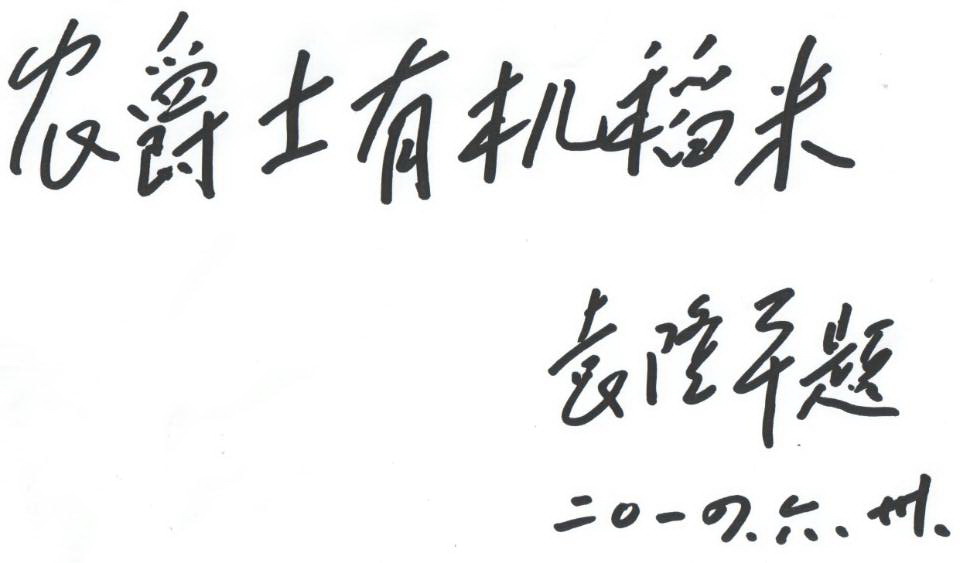 农爵士有机稻米
袁隆平题
二〇一四.六.卅.